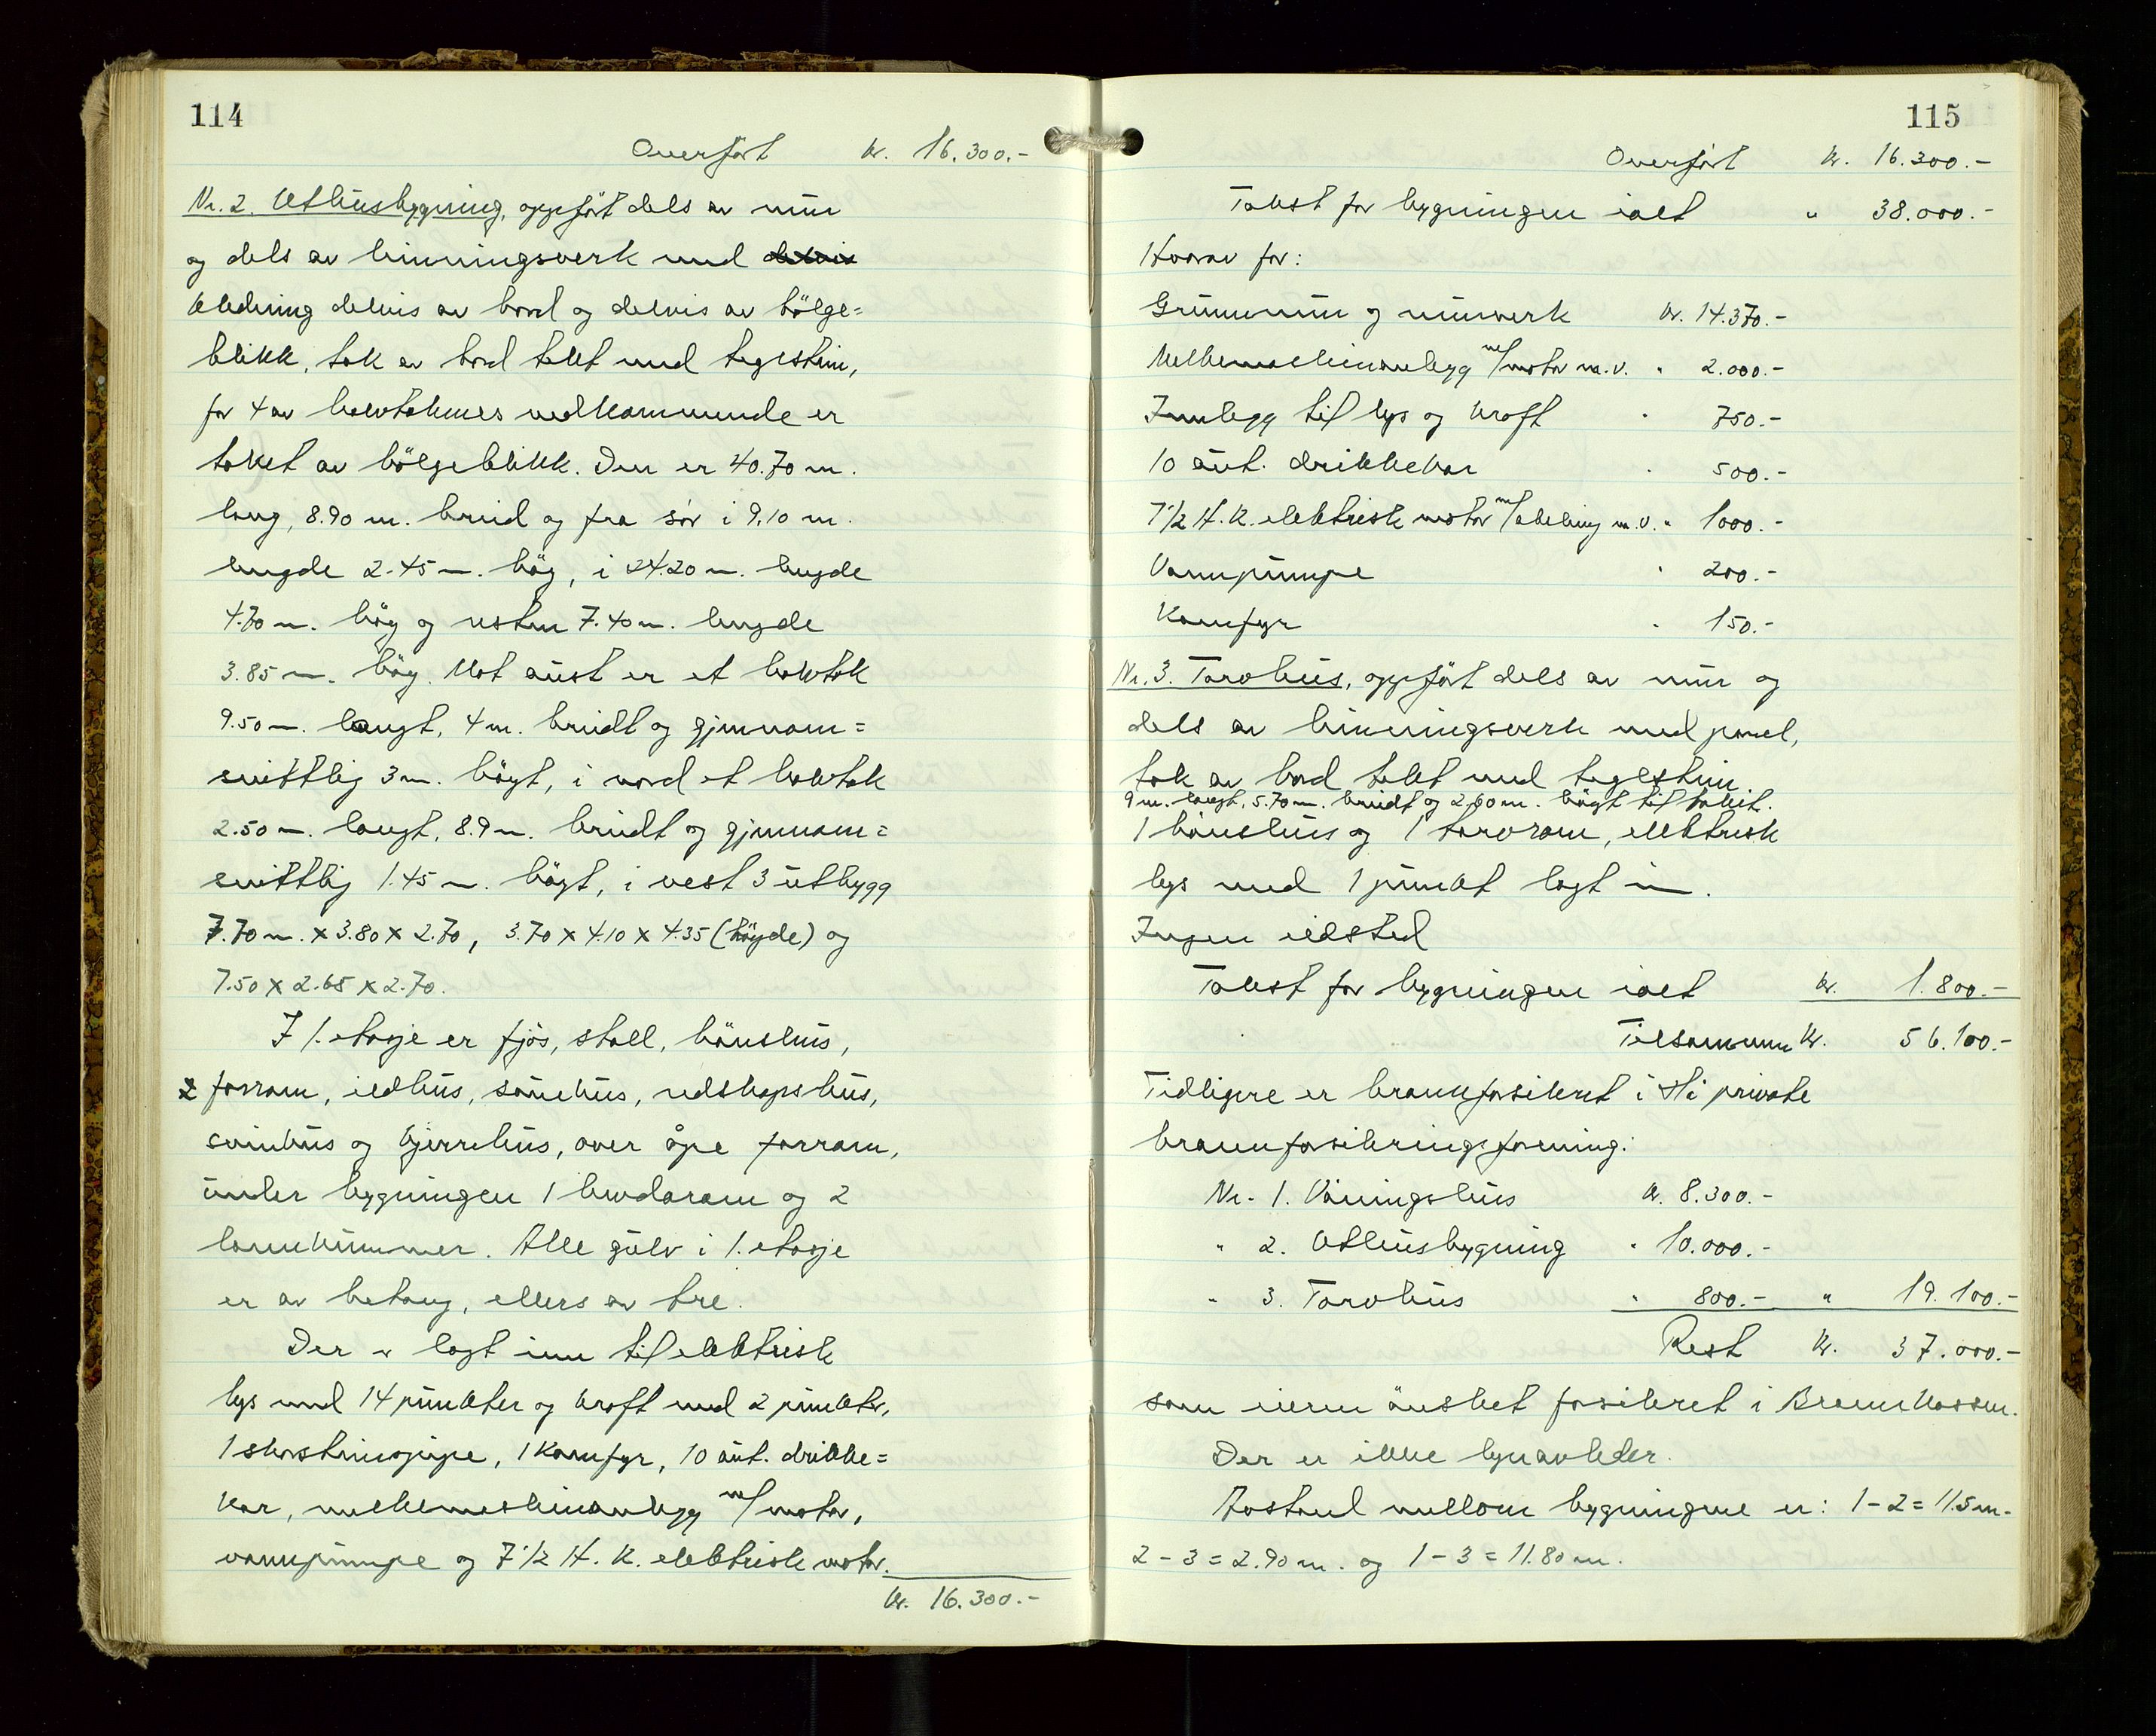 114
Overført kr. 16.300.-
Nr. 2. Uthusbygning, oppført dels av mur
og dels av binningsverk med delvis
kledning delvis av bord og delvis av bølge=
blikk, tak av bord tekt med teglstein,
for 4 av halvtakenes vedkommende er
taket av bølgeblikk. Den er 40.70 m.
lang, 8.90 m. breid og fra sør i 9.10 m.
lengde 2.45 m. høg, i 24.20 m. lengde
4.70 m. høg og resten 7.40 m. lengde
3.85 m. høg. Mot aust er et halvtak
9.50 m. langt, 4 m. breidt og gjennom=
snittlig 3 m. høgt, i nord et halvtak
2.50 m. langt, 8.9 m. breidt og gjennom=
snittlig 1.45 m. høgt, i vest 3 utbygg
7.70 m. x 3.80 x 2.70, 3.70 x 4.10 x 4.35 (høgde) og
7.50 x 2.65 x 2.70.
I 1. etasje er fjøs, stall, hønshus,
2 forrom, ildhus, sauehus, redskapshus,
svinhus og kjerrehus, over åpe forrom,
under bygningen 1 landarom og 2
lannkummer. Alle gulv i 1. etasje
er av betong, ellers av tre.
Der er lagt inn til elektrisk
lys med 14 punkter og kraft med 2 punkter,
1 skorsteinspipe, 1 komfyr, 10 aut. drikke=
kar, melkemaskinanlegg m/motor,
vannpumpe og 7 1/2 H.K. elektrisk motor.
kr. 16.300.-
115
Overført kr. 16.300.-
Takst for bygningen ialt " 38.000.-
Hvorav for:
Grunnmur og murverk kr. 14.370.-
Melkemaskinanlegg m/motor m.v. " 2.000.-
Innlegg til lys og kraft " 750.-
10 aut. drikkekar " 500.-
7 1/2 H.K. elektrisk motor m/avdeling m.v. " 1000.-
Vannpumpe " 200.-
Komfyr " 150.-
Nr. 3. Torvhus, oppført dels av mur og
dels av binningsverk med panel,
tak av bord tekt med teglstein
9 m. langt, 5.70 m. breidt og 2.60 m. høgt til taket.
1 hønshus og 1 torvrom, elektrisk
lys med 1 punkt lagt inn.
Ingen ildsted
Takst for bygningen ialt kr. 1.800.-
Tilsammen kr. 56.100.-
Tidligere er brannforsikret i Hå private
brannforsikringsforening:
Nr. 1. Våningshus kr. 8.300.-
" 2. Uthusbygning " 10.000.-
" 3. Torvhus " 800.- " 19.100.-
Rest kr. 37.000.-
som eieren ønsket forsikret i Brannkassen.
Der er ikke lynavleder.
Avstand mellom bygningene er: 1-2 = 11.5 m.
2-3 = 2.90 m. og 1-3 = 11.80 m.